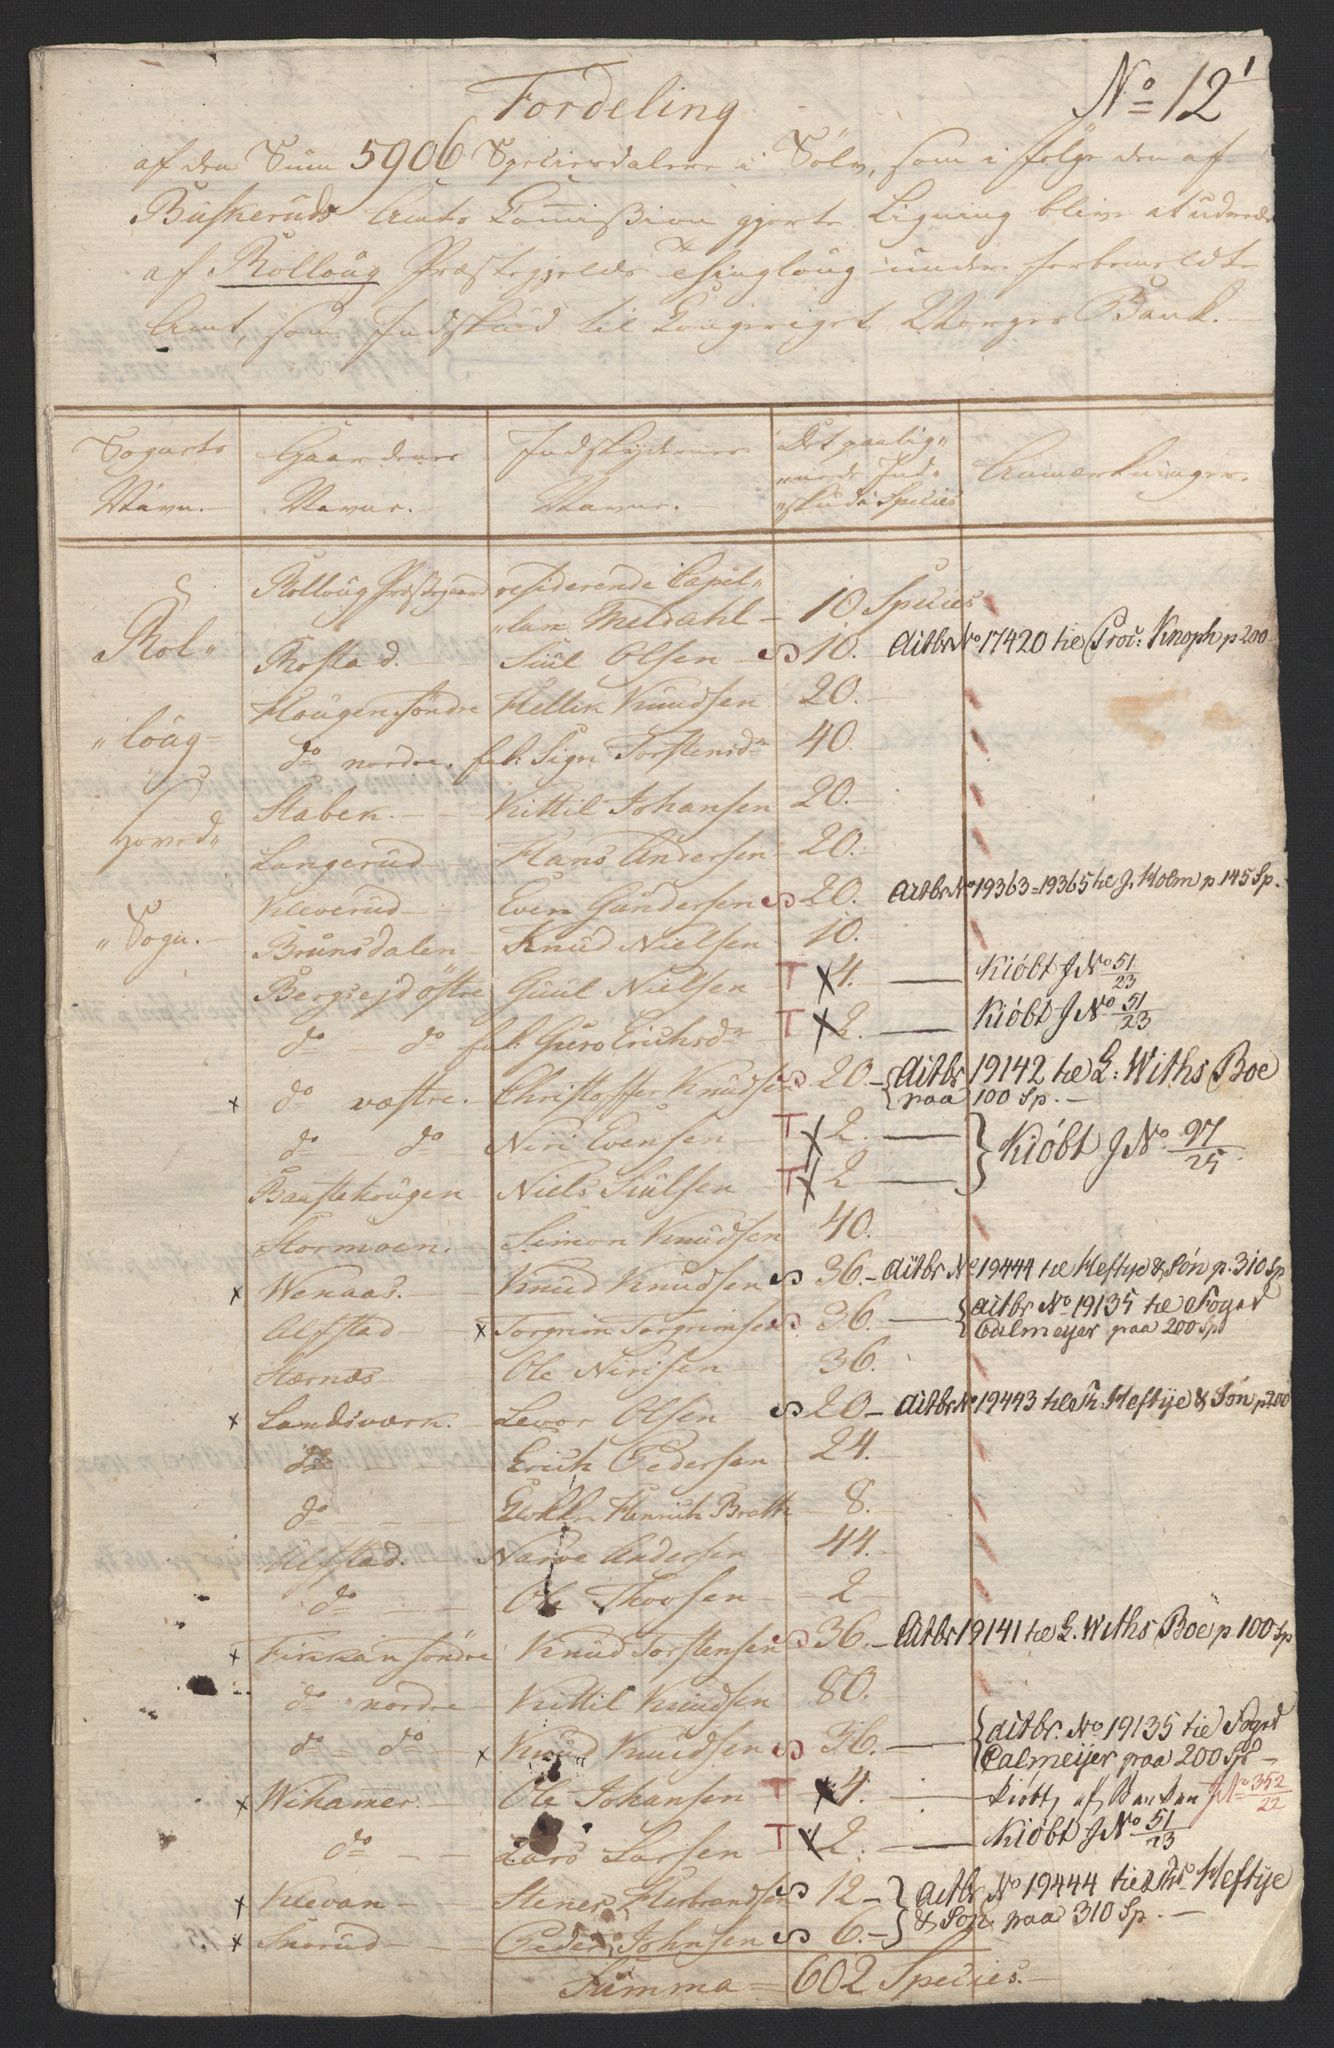 No 12
1
Fordeling
af den Sum 5906 Speciesdalere i Sölv, som i fölge den af
Buskeruds Amts Commission gjorte Ligning bliver at udrede
af Rolloug Præstegjelds Thinglaug under forbemeldte
Amt, som Indskud til Kongeriget Norges Bank.
Sognets Gaardenes Indskydernes Det paalig„ Anmærkninger.
Navn. Navne. Navne. „nede Ind„
„skud i Species
Rol„ „loug Hoved„ „Sogn.
Rolloug Præstegaard residerende Capel„
„lan Meldahl - 10 Species
Rostad. Juul Olsen 10. Aitbr No 17420 til Proc: Knoph p 200
Hougen söndre Hellik Knudsen 20.
do nordre. Sigri Torstensdr 40.
Staben. Kittil Johansen 20.
Langerud Hans Andersen 20.
Kleverud Even Gundersen 20. Aitbr No 19363=19365 til J. Holm p 145 Sp.
Brunsdalen Knud Nielsen 10.
Bergsejd östre Guul Nielsen T x 4. Kiöbt J No 51/23
do do Guro Erichsdr T x 2. Kiöbt J No 51/23
x do væstre. Christoffer Knudsen 20 - Aitbr 19142 til G: Withs Boe
paa 100 Sp. -
do do Niri Evensen T x 2. Kiöbt J No 97/25
Baustehougen Niels Juulsen T x 2
Stormoen. Simon Knudsen 40.
x Wenaas. Knud Knudsen 36. - Aitbr No 19444 til Heftye & Sön p. 310 Sp
Alfstad x Torgrim Torgrimsen 36. aitbr No 19135 til Foged
Calmeijer paa 200 Sp
Stærnæs Ole Nirisen 36.
x Landsværk. Levor Olsen 20 - Aitbr No 19443 til Th. Heftye & Sön p 200
do Erich Pedersen 24.
do Henrich Bratte 8.
Ulfstad. Narve Andersen 44.
do Ole Thovsen 2
x Fixkan söndre Knud Torstensen 36. - Aitbr 19141 til G. Withs Boe p 100 Sp
do nordre Kittil Knudsen 80.
do do x Knud Knudsen 36. aitbr. No 19135 til Foged
Calmeijer paa 200 Sp -
x Wihammer. Ole Johansen T x 4. kiöbt af Banken J No 352/22
do Lars Larsen T x 2. Kiöbt J No 51/23
x Klevan Stener Herbrandsen 12 - aitbr No 19444 til Ths Heftye
x Snorud Peder Johnsen 6. - & Sön. paa 310 Sp. -
Summa = 602 Species. -